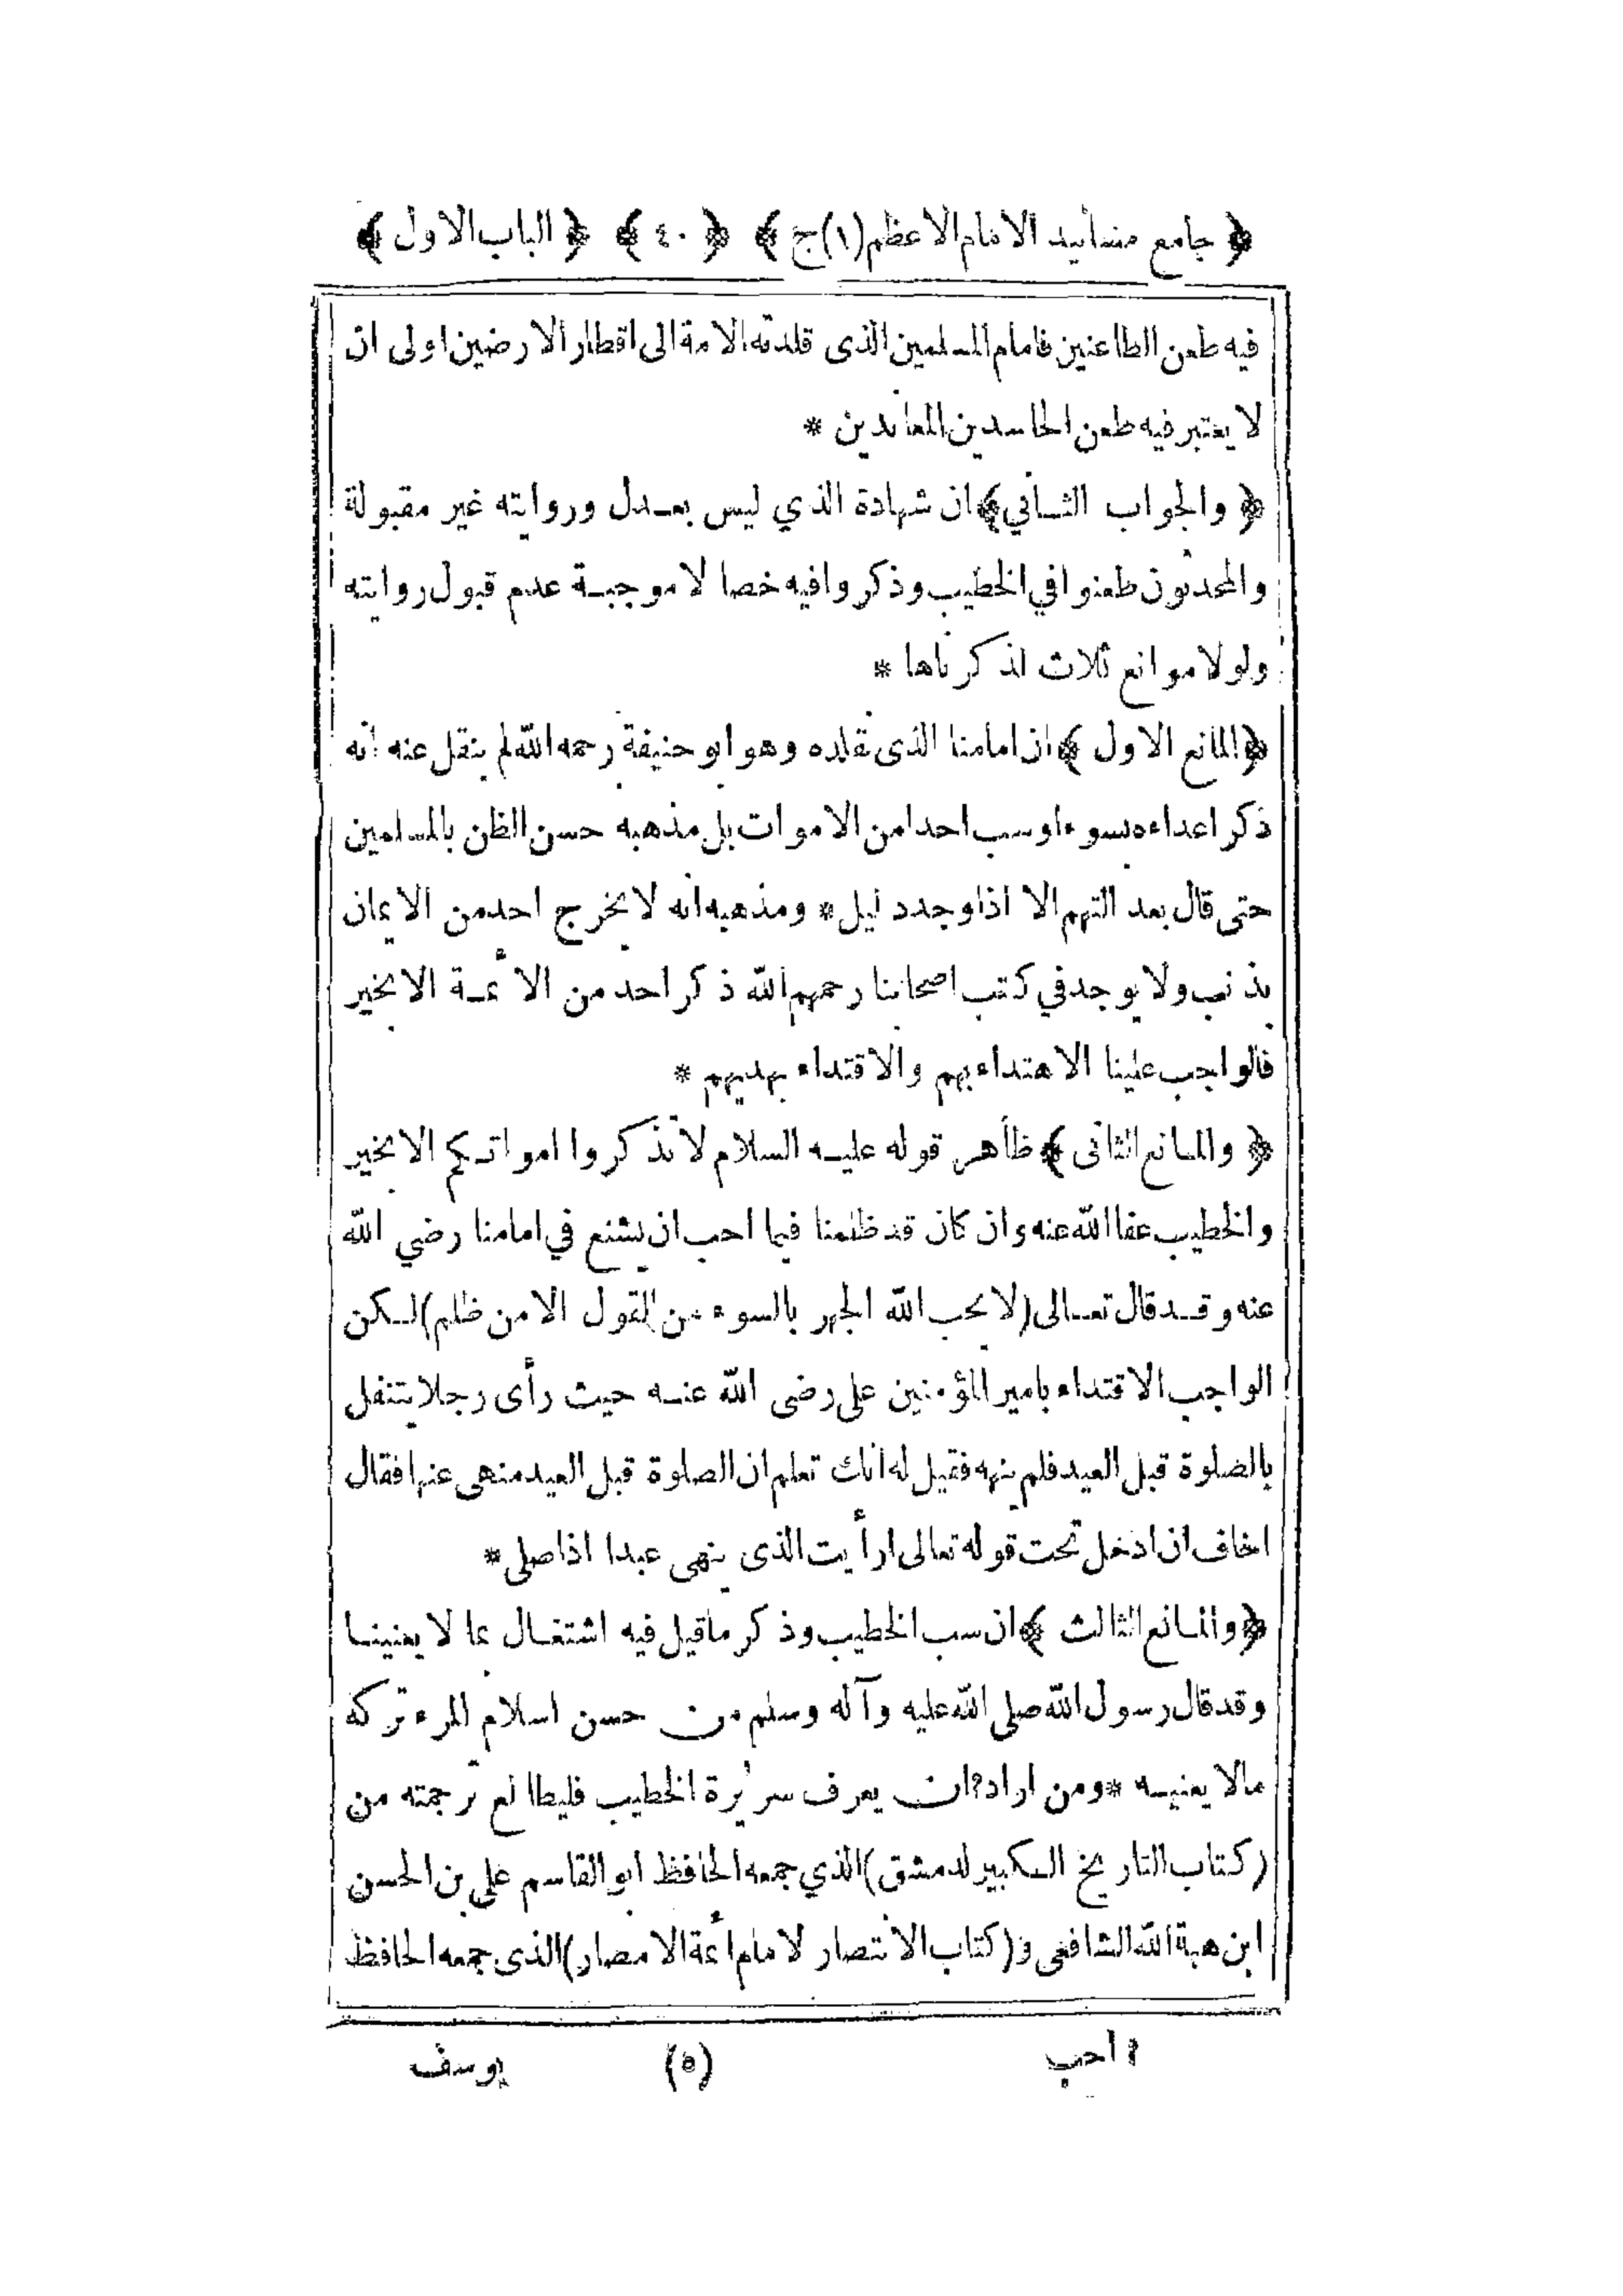 ﴿ جامع مسانيد الامام الاعظم (١) ج ﴾ ﴿ ٤٠ ﴾ ﴿ الباب الاول ﴾
فيه طعن الطاعنين فامام المسلمين الذى قلدته الامة الى اقطار الارضين اولى ان
لا يعتبر فيه طعن الحاسدين المعاندين *
﴿ والجواب الثـاني ﴾ ان شهادة الذي ليس بعـدل وروايته غير مقبولة
والمحدثون طعنوا في الخطيب وذكروا فيه خصالا موجبـة عدم قبول روايته
ولولا موانع ثلاث لذكرناها *
﴿ المانع الاول ﴾ ان امامنا الذى نقلده وهو ابو حنيفة رحمه الله لم ينقل عنه انه
ذكر اعداءه بسوء او سب احدا من الاموات بل مذهبه حسن الظن بالمسلمين
حتى قال بعد التهم الا اذا وجد دليل * ومذهبه انه لا يخرج احد من الايمان
بذنب ولا يوجد في كتب اصحابنا رحمهم الله ذكر احد من الأئمـة الا بخير
فالواجب علينا الاهتداء بهم والاقتداء بهديهم *
﴿ والمـانع الثانى ﴾ ظاهر قوله عليـه السلام لا تذكروا امواتـكم الا بخير
والخطيب عفا الله عنه وان كان قد ظلمنا فيما احب ان يشنع في امامنا رضي الله
عنه وقـد قال تعـالى (لا يحب الله الجهر بالسوء من القول الا من ظلم) لـكن
الواجب الاقتداء بامير المؤمنين على رضى الله عنـه حيث رأى رجلا يتنفل
بالصلوة قبل العيد فلم ينهه فقيل له انك تعلم ان الصلوة قبل العيد منهى عنها فقال
اخاف ان ادخل تحت قوله تعالى ارأيت الذى ينهى عبدا اذا صلى *
﴿ والمـانع الثالث ﴾ ان سب الخطيب وذكر ما قيل فيه اشتغـال بما لا يعنينـا
وقد قال رسول الله صلى الله عليه وآله وسلم من حسن اسلام المرء تركه
مالا يعنيـه * ومن اراد ان يعرف سريرة الخطيب فليطالع ترجمته من
(كتاب التاريخ الـكبير لدمشق) الذي جمعه الحافظ ابو القاسم على بن الحسن
ابن هبة الله الشافعى و (كتاب الانتصار لامام أئمة الامصار) الذى جمعه الحافظ
احب (٥) يوسف